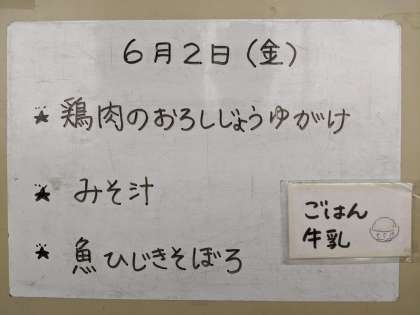 6月2日(金)
★ 鶏肉のおろしじょうゆがけ
★ みそ汁
★ 魚ひじきそぼろ
ごはん
牛乳